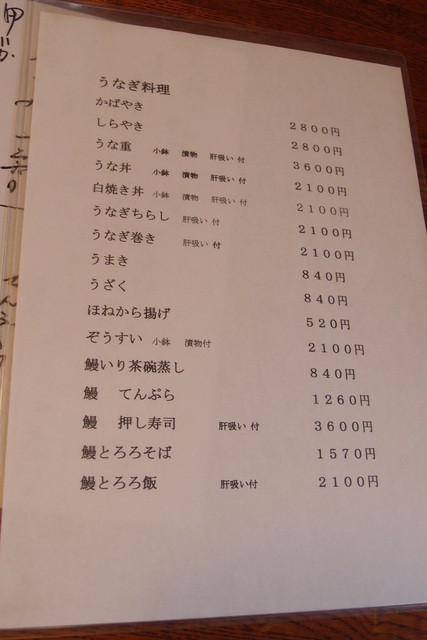 うなぎ料理
かばやき 2800円
しらやき 2800円
うな重 小鉢 漬物 肝吸い 付 3600円
うな丼 小鉢 漬物 肝吸い 付 2100円
白焼き丼 小鉢 漬物 肝吸い 付 2100円
うなぎちらし 肝吸い 付 2100円
うなぎ巻き 肝吸い 付 2100円
うまき 840円
うざく 840円
ほねから揚げ 520円
ぞうすい 小鉢 漬物付 2100円
鰻いり茶碗蒸し 840円
鰻 てんぷら 1260円
鰻 押し寿司 肝吸い 付 3600円
鰻とろろそば 1570円
鰻とろろ飯 肝吸い付 2100円